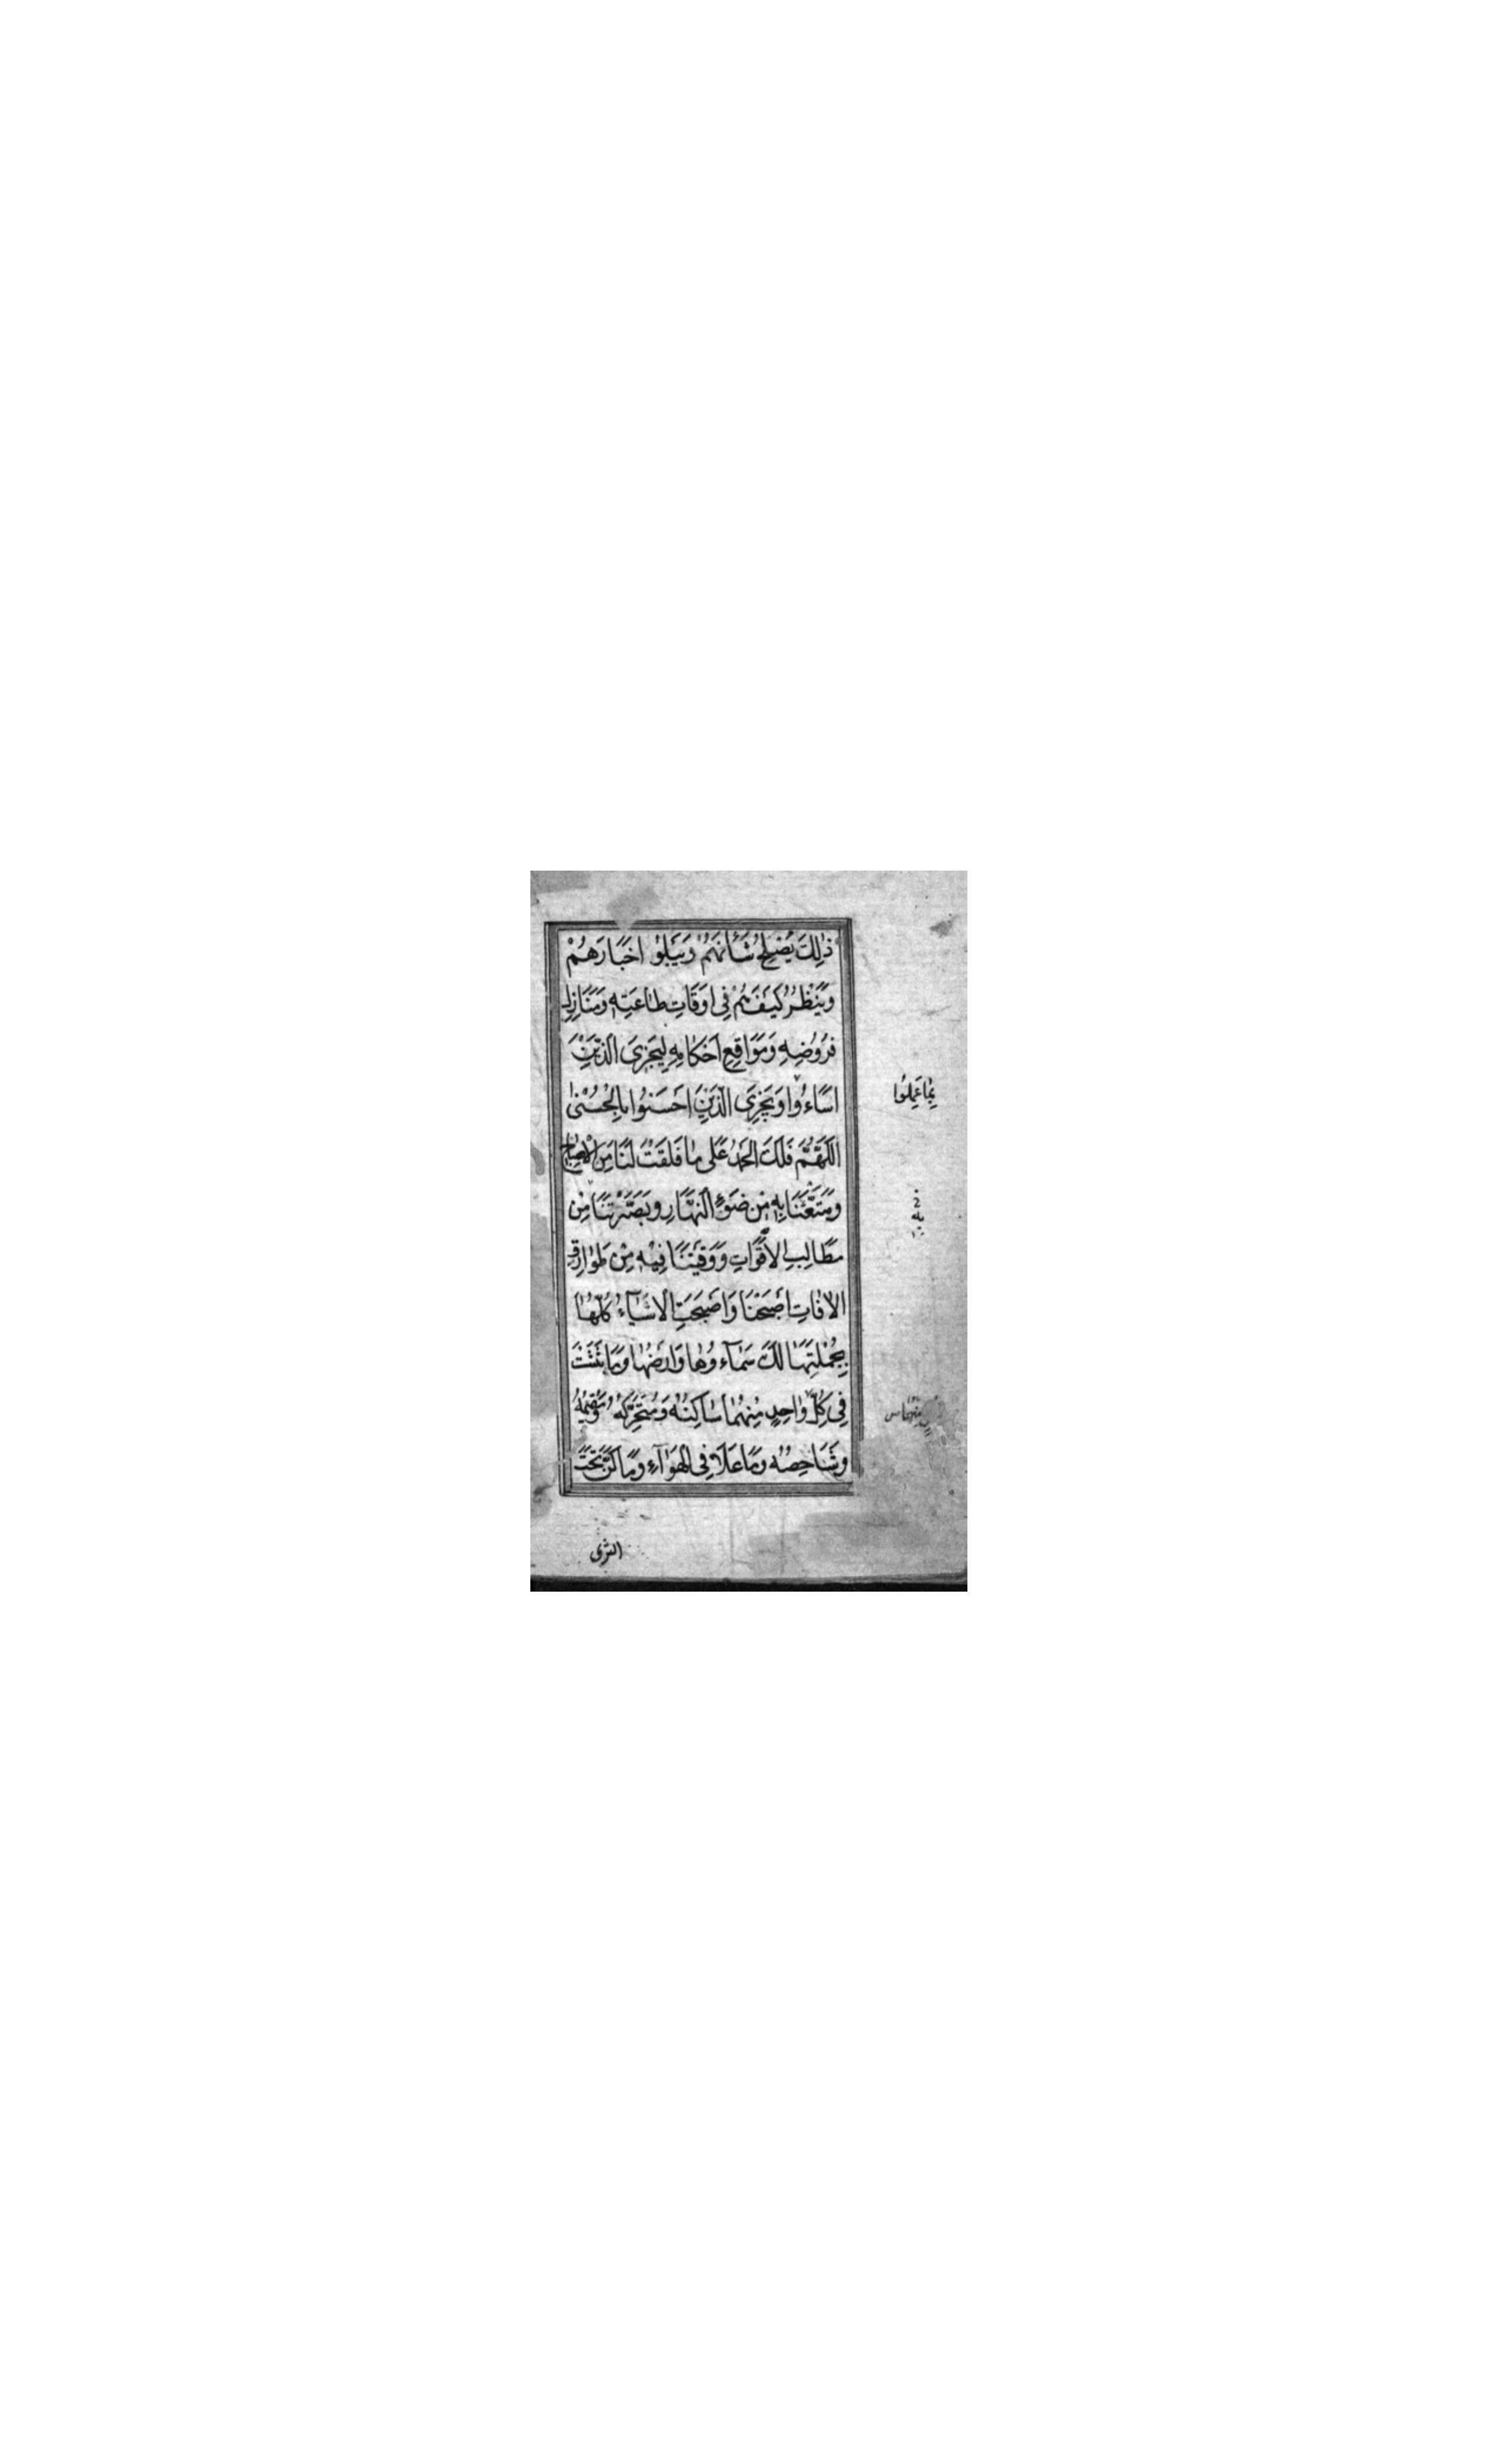 ذٰلِكَ يُصْلِحُ شَأْنَهُمْ وَيَبْلُوا اَخْبَارَهُمْ
وَيَنْظُرُ كَيْفَ هُمْ فِى اَوْقَاتِ طَاعَتِهِ وَمَنَازِلِ
فُرُوضِهِ وَمَوَاقِعِ اَحْكَامِهِ لِيَجْزِىَ الَّذِيْنَ
اَسَاءُوا وَيَجْزِىَ الَّذِيْنَ اَحْسَنُوا بِالْحُسْنٰى
بِمَا عَمِلُوا
اَللّٰهُمَّ فَلَكَ الْحَمْدُ عَلٰى مَا فَلَقْتَ لَنَا مِنَ الْاِصْبَاحِ
وَمَتَّعْتَنَا بِهِ مِنْ ضَوْءِ النَّهَارِ وَبَصَّرْتَنَا مِنْ
مَطَالِبِ الْاَقْوَاتِ وَوَقَيْتَنَا فِيْهِ مِنْ طَوَارِقِ
الْاٰفَاتِ اَصْبَحْنَا وَاَصْبَحَتِ الْاَشْيَاءُ كُلُّهَا
بِجُمْلَتِهَا لَكَ سَمَاءُهَا وَاَرْضُهَا وَمَا بَثَثْتَ
فِى كُلِّ وَاحِدٍ مِنْهُمَا سَاكِنُهُ وَمُتَحَرِّكُهُ وَمُقِيْمُهُ
وَشَاخِصُهُ وَمَا عَلَا فِى الْهَوَاءِ وَمَا كَنَّ تَحْتَ
الثرى